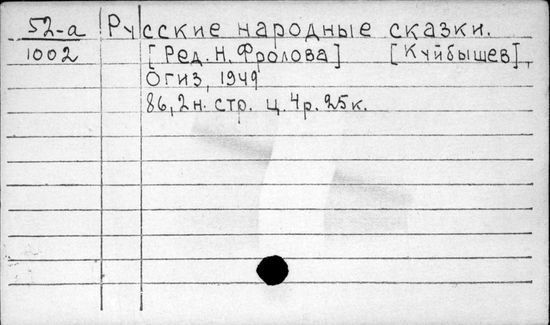 52-а Русские народные сказки.
1002 [Ред. Н. Фролова] [Куйбышев],
Огиз, 1949
86, 2 н. стр. ц. 4 р. 25 к.